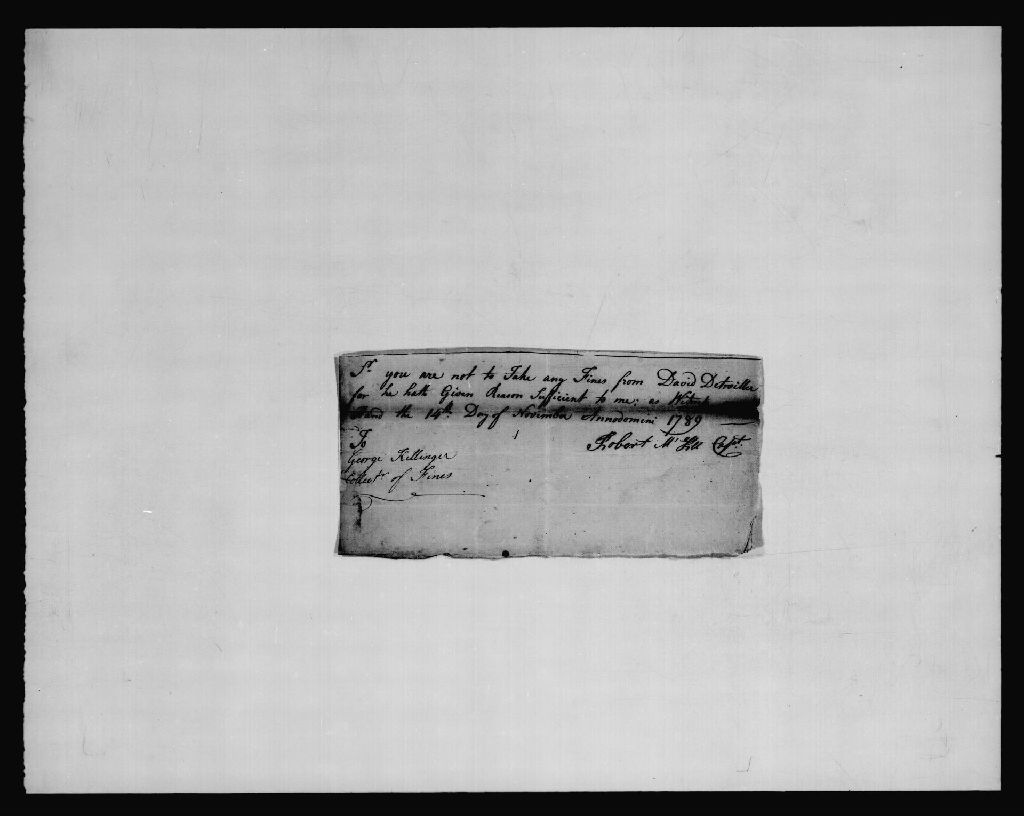 Sr. you are not to Take any Fines from David Detwiller
for he hath Given Reason Sufficient to me: as Witness
Hand the 14th Day of November Annodomini 1789
To
Robert Mc Capt.
George Killinger
Collectr. of Fines